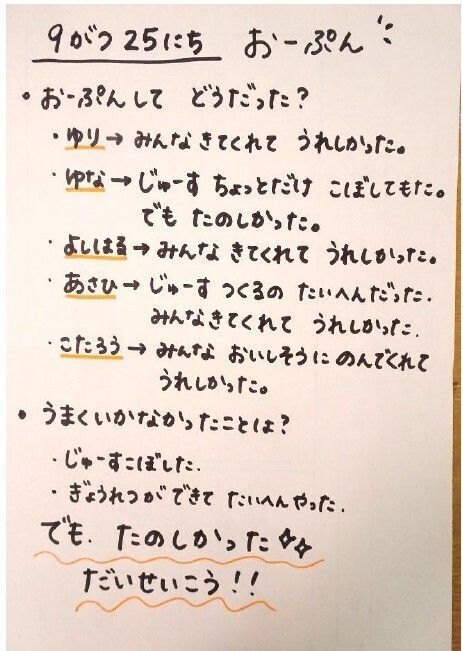 9がつ25にち おーぷん
• おーぷんして どうだった?
・ゆり→ みんな きてくれて うれしかった。
・ゆな→ じゅーす ちょっとだけ こぼしてもた。
でも たのしかった。
・よしはる→ みんな きてくれて うれしかった。
・あさひ→ じゅーす つくるの たいへんだった.
みんなきてくれて うれしかった.
・こたろう→ みんな おいしそうに のんでくれて
うれしかった。
• うまくいかなかったことは?
・じゅーすこぼした.
・ぎょうれつが できて たいへんやった.
でも. たのしかった✧✧
だいせいこう!!